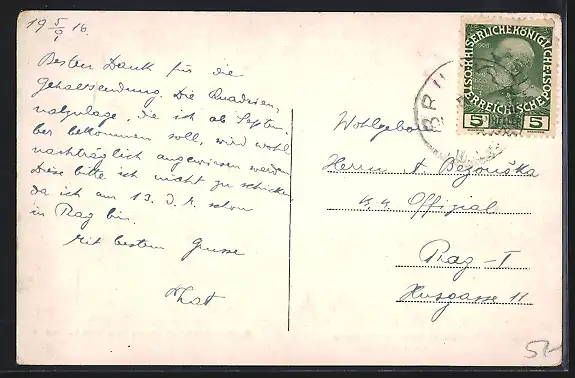 19 5/9 16.
Besten Dank für die
Gehaltsendung. Die Quadrien-
nalzulage, die ich ab Septem-
ber bekommen soll, wird wohl
nachträglich angewiesen werden.
Diese bitte ich nicht zu schicken,
da ich am 13. d. M. schon
in Prag bin.
Mit bestem Grusse
K.K.OESTERREICHISCHE POST
1908
5 HELLER 5
BRÜ
Wohlgeboren
Herrn A. Bezouška
k. k. Offizial
Prag - I
Husgasse 11